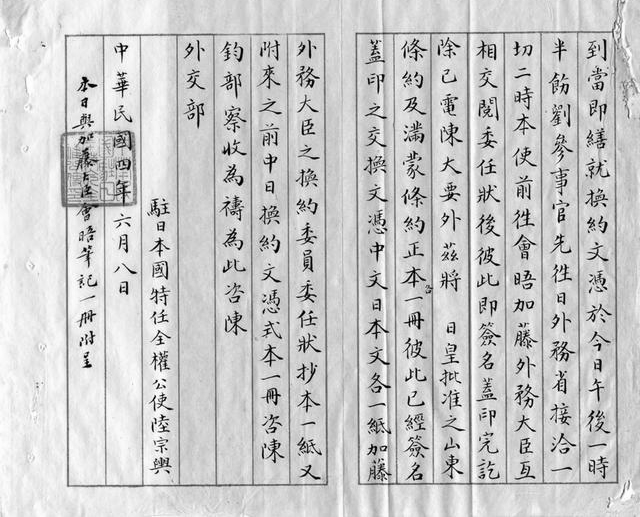 到當即繕就換約文憑於今日午後一時
半飭劉參事官先往日外務省接洽一
切二時本使前往會晤加藤外務大臣互
相交閱委任狀後彼此即簽名蓋印完訖
除已電陳大要外茲將 日皇批准之山東
條約及滿蒙條約正本各一冊彼此已經簽名
蓋印之交換文憑中文日本文各一紙加藤
外務大臣之換約委員委任狀抄本一紙又
附來之前中日換約文憑式本一冊咨陳
鈞部察收為禱為此咨陳
外交部
駐日本國特任全權公使陸宗輿
中華民國四年六月八日
本日與加藤大臣會晤筆記一冊附呈